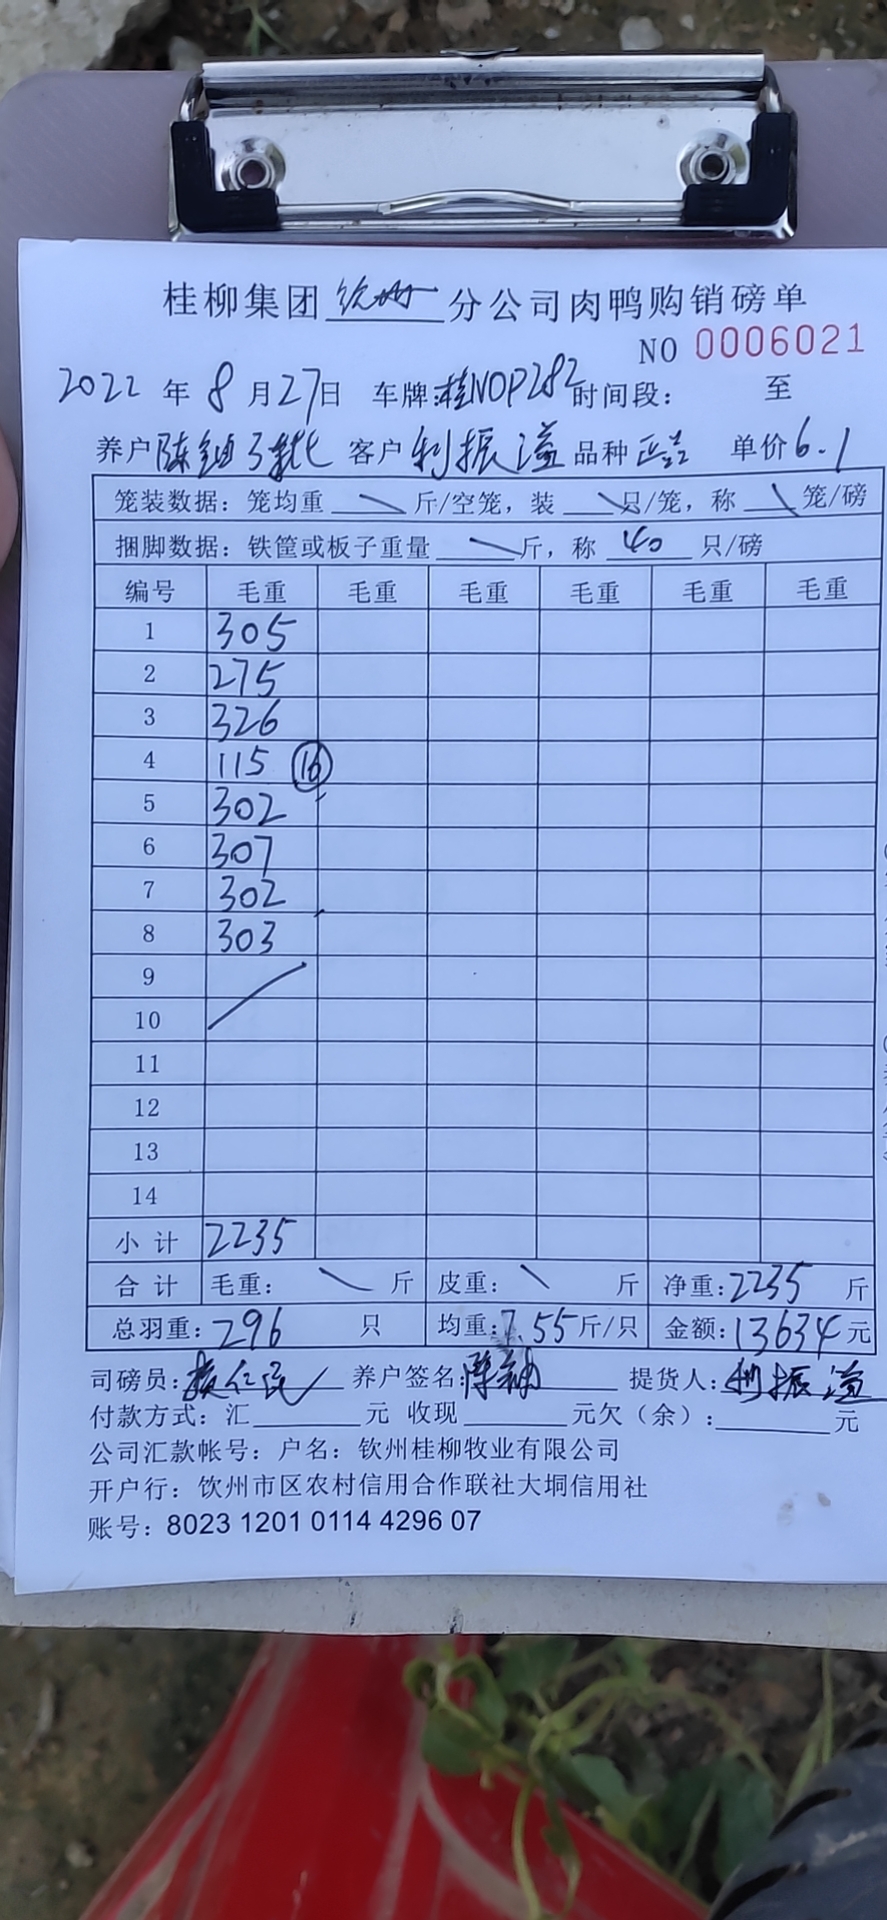 桂柳集团钦州分公司肉鸭购销磅单
NO 0006021
2022年8月27日 车牌:桂NOP282时间段: 至
养户陈 客户利振溢品种 单价6.1
笼装数据:笼均重 \ 斤/空笼,装 \ 只/笼,称 \ 笼/磅
捆脚数据:铁筐或板子重量 \ 斤,称 40 只/磅
编号 毛重 毛重 毛重 毛重 毛重 毛重
1 305
2 275
3 326
4 115 ⑯
5 302
6 307
7 302
8 303
9
10
11
12
13
14
小计 2235
合计 毛重: \ 斤 皮重: \ 斤 净重:2235 斤
总羽重:296 只 均重:7.55斤/只 金额:13634元
司磅员: 养户签名:陈 提货人:利振溢
付款方式:汇 元 收现 元欠(余): 元
公司汇款帐号:户名:钦州桂柳牧业有限公司
开户行:饮州市区农村信用合作联社大垌信用社
账号:8023 1201 0114 4296 07